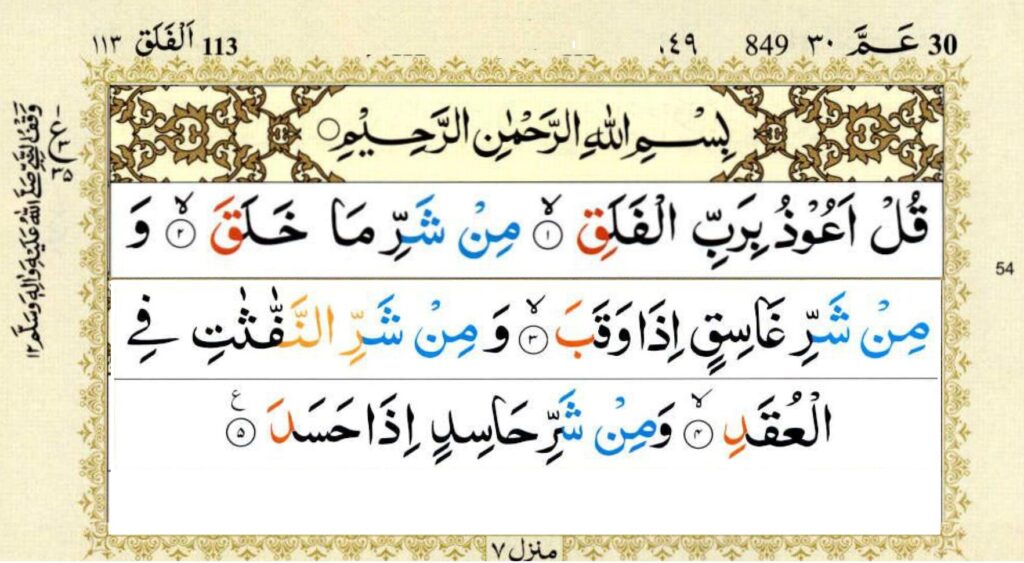 30 عَـمَّ ٣٠ 849 ٨٤٩
113 اَلْفَلَق ١١٣
بِسْمِ اللّٰهِ الرَّحْمٰنِ الرَّحِيْمِ
قُلْ اَعُوْذُ بِرَبِّ الْفَلَقِ ۙ‏﴿۱﴾ مِنْ شَرِّ مَا خَلَقَ ۙ‏﴿۲﴾ وَ
مِنْ شَرِّ غَاسِقٍ اِذَا وَقَبَ ۙ‏﴿۳﴾ وَ مِنْ شَرِّ النَّفّٰثٰتِ فِي
الْعُقَدِ ۙ‏﴿۴﴾ وَمِنْ شَرِّ حَاسِدٍ اِذَا حَسَدَ ‏﴿۵﴾ ع
54
منزل ٧